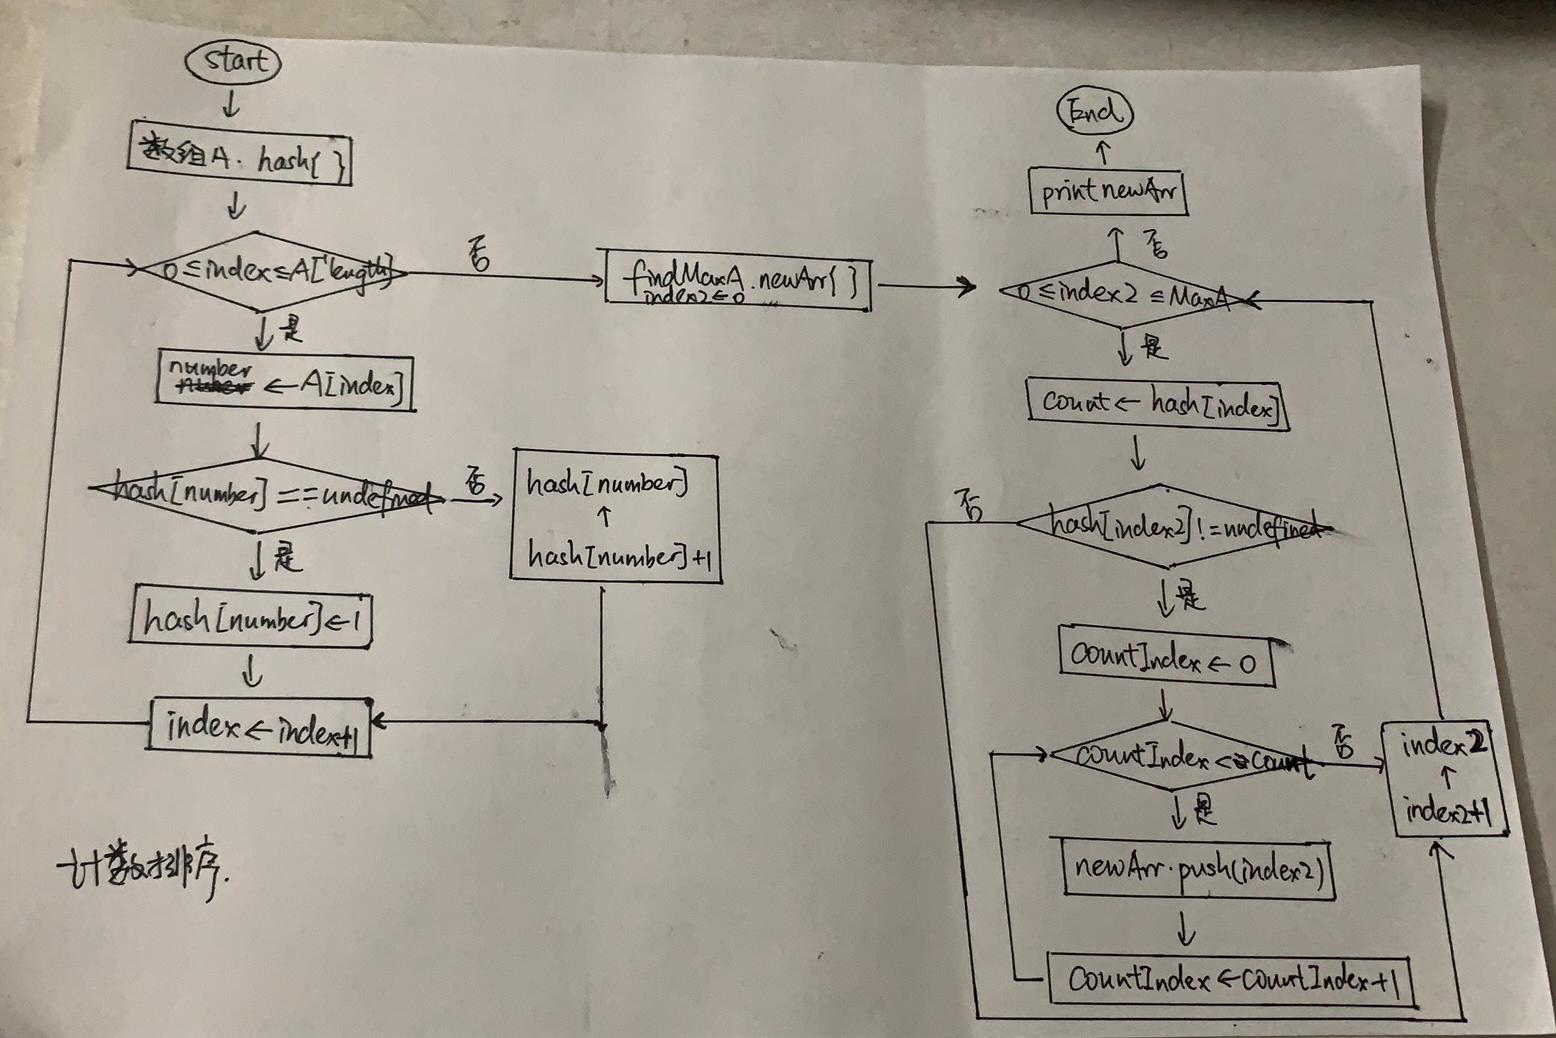 Start
数组A. hash{ }
0≤index≤A['length']
否
是
number ← A[index]
hash[number]==undefined
否
hash[number]
↑
hash[number]+1
是
hash[number]←1
index←index+1
计数排序.
findMaxA.newArr{ }
index2←0
End
print newArr
否
0≤index2≤MaxA
是
count← hash[index]
hash[index2]!=undefined
否
是
countIndex←0
countIndex<=count
否
index2
↑
index2+1
是
newArr.push(index2)
countIndex←countIndex+1